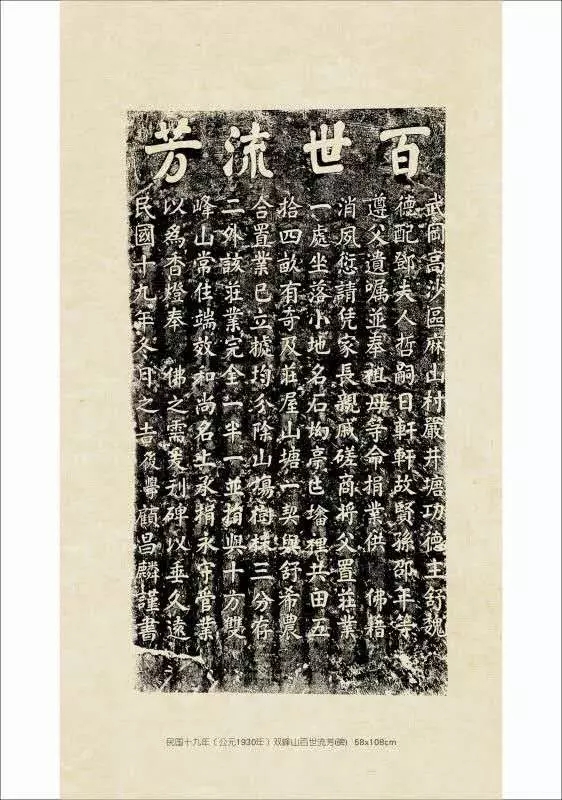 百世流芳
武岡高沙區麻山村嚴井塘功德主舒魏
德配鄧夫人哲嗣日軒軒故賢孫邵年等
遵父遺囑並奉祖母等命捐業供 佛籍
消夙愆請凭家長親戚磋商將父置莊業
一處坐落小地名石坳亭也 裡共田五
拾四畝有奇及莊屋山塘一契與舒希農
合置業已立據均分除山場樹株三分存
二外該莊業完全一半一並捐與十方雙
峰山常住端效和尚名上承捐永守管業
以爲香燈奉 佛之需爰刊碑以垂久遠
民國十九年冬月之吉後學顧昌麟謹書
民国十九年（公元1930年）双峰山百世流芳(碑) 58x108cm